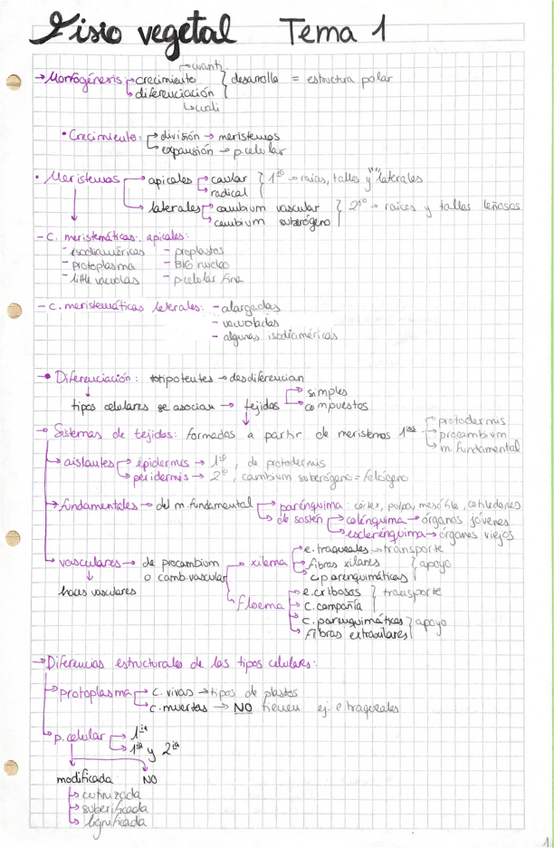 Fisio vegetal Tema 1
cuanti.
→ Morfogénesis → crecimiento } desarrollo = estructura polar
→ diferenciación
↳ cuali
• Crecimiento: → división → meristemos
→ expansión → p.celular
• Meristemos → apicales → caular } 1rio → raíces, tallos y laterales
→ radical
→ laterales → cambium vascular } 2rio → raíces y tallos leñosos
→ cambium suberógeno
- C. meristemáticas apicales:
- isodiamétricas - proplastos
- protoplasma - BIG nucleo
- little vacuolas - p.celular fina
- C. meristemáticas laterales: - alargadas
- vacuoladas
- algunas isodiamétricas
→ Diferenciación: totipotentes → desdiferencian
tipos celulares se asocian → tejidos → simples
→ compuestos
→ Sistemas de tejidos: formados a partir de meristemos 1rios → protodermis
→ procambium
→ m. fundamental
→ aislantes → epidermis → 1rio, de protodermis
→ peridermis → 2rio, cambium suberógeno = felógeno
→ fundamentales → del m. fundamental → parénquima: córtex, pulpa, mesófilo, cotiledones
→ de sostén → colénquima → órganos jóvenes
→ esclerénquima → órganos viejos
→ vasculares → de procambium o camb. vascular
haces vasculares
→ xilema → e. traqueales → transporte
→ fibras xilares } apoyo
→ c. parenquimáticas
→ floema → e. cribosos } transporte
→ c. compañía
→ c. parenquimáticas } apoyo
→ Fibras extraxilares
→ Diferencias estructurales de los tipos celulares:
→ protoplasma → c. vivas → tipos de plastos
→ c. muertas → NO tienen ej: e. traqueales
→ p. celular → 1ria
→ 1ria y 2ria
modificada NO
→ cutinizada
→ suberificada
→ lignificada
1